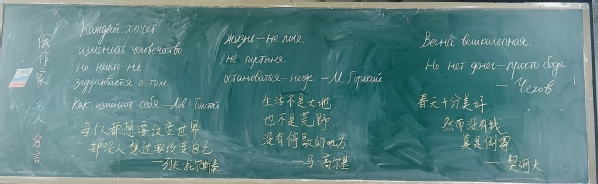 俄作家名人名言
Каждый хочет
изменить человечество
но никто не
задумывается о том
Как изменить себя - Лев Толстой
每个人都想要改变世界
却没人想过要改变自己
——列夫托尔斯泰
Жизнь - не поле,
не пустыня.
остановиться - негде - М. Горький
生活不是大地
也不是荒野
没有停歇的地方
——马 高尔基
Весна великолепная.
Но нет денег - просто беда
— Чехов
春天十分美好
然而没有钱
真是倒霉
——契诃夫